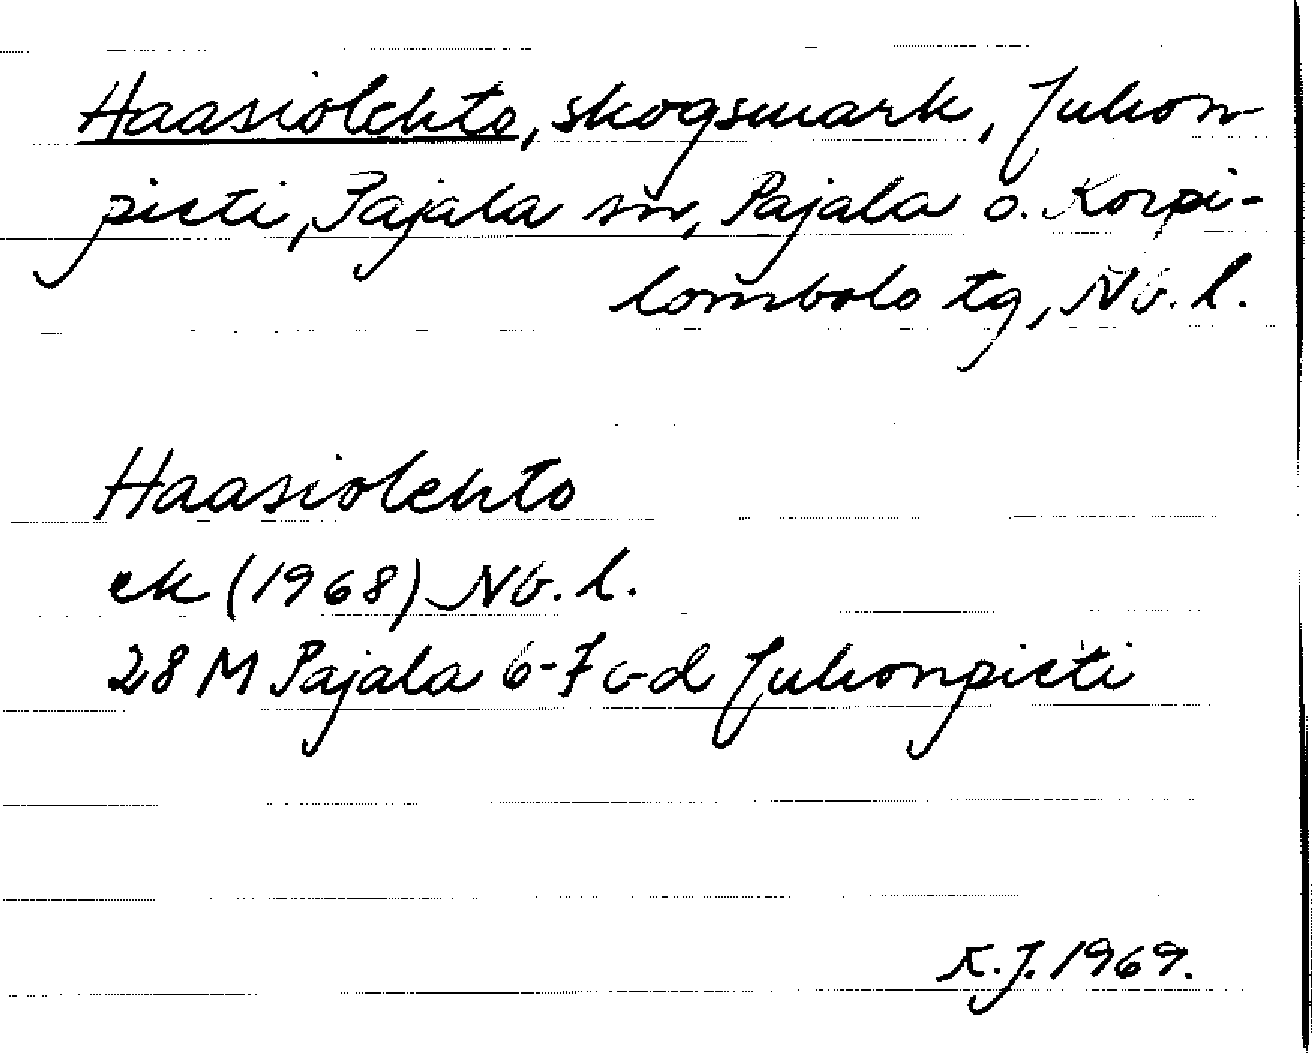 Haasiolehto, skogsmark, Juhon
pieti, Pajala sn, Pajala o. Korpi-
lombolo tg, Nb. l.
Haasiolehto
ek (1968) Nb. l.
28 M Pajala 6-7 c-d Juhonpieti
K.J. 1969.